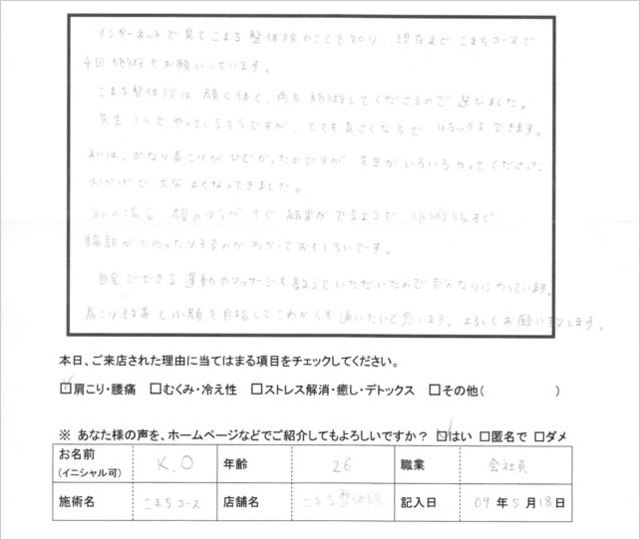 インターネットで見てこまち整体院のことを知り、現在までこまちコースで
4回施術をお願いしています。
こまち整体院は顔と体と、両方施術してくださるので選びました。
先生1人でやっているそうですが、とても気さくな方でリラックスできます。
私は、かなり肩こりがひどかったのですが先生がいろいろやってくださった
おかげで大分よくなってきました。
顔のほうがすぐ結果がでるようで、施術後すぐ
輪郭がかわったりするのがわかっておもしろいです。
自宅でできる運動やマッサージも教えていただいたので自分なりにやっています。
肩こり改善と小顔を目指してこれからも通いたいと思います。よろしくお願い致します。
本日、ご来店された理由に当てはまる項目をチェックしてください。
☑肩こり・腰痛 □むくみ・冷え性 □ストレス解消・癒し・デトックス □その他( )
※ あなた様の声を、ホームページなどでご紹介してもよろしいですか? ☑はい □匿名で □ダメ
お名前 (イニシャル可) K.O 年齢 26 職業 会社員
施術名 こまちコース 店舗名 こまち整体院 記入日 09年5月18日